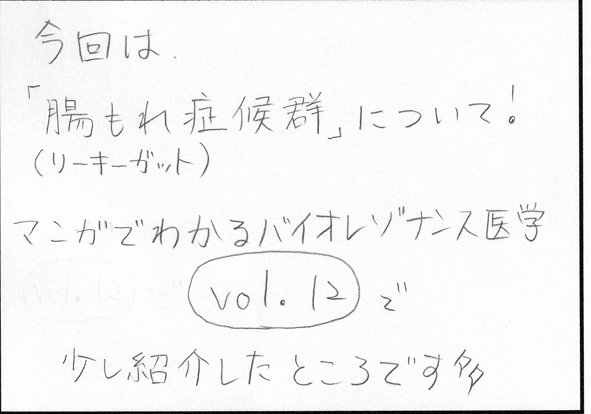 今回は、
「腸もれ症候群」について!
(リーキーガット)
マンガでわかるバイオレゾナンス医学
vol.12 で
少し紹介したところです